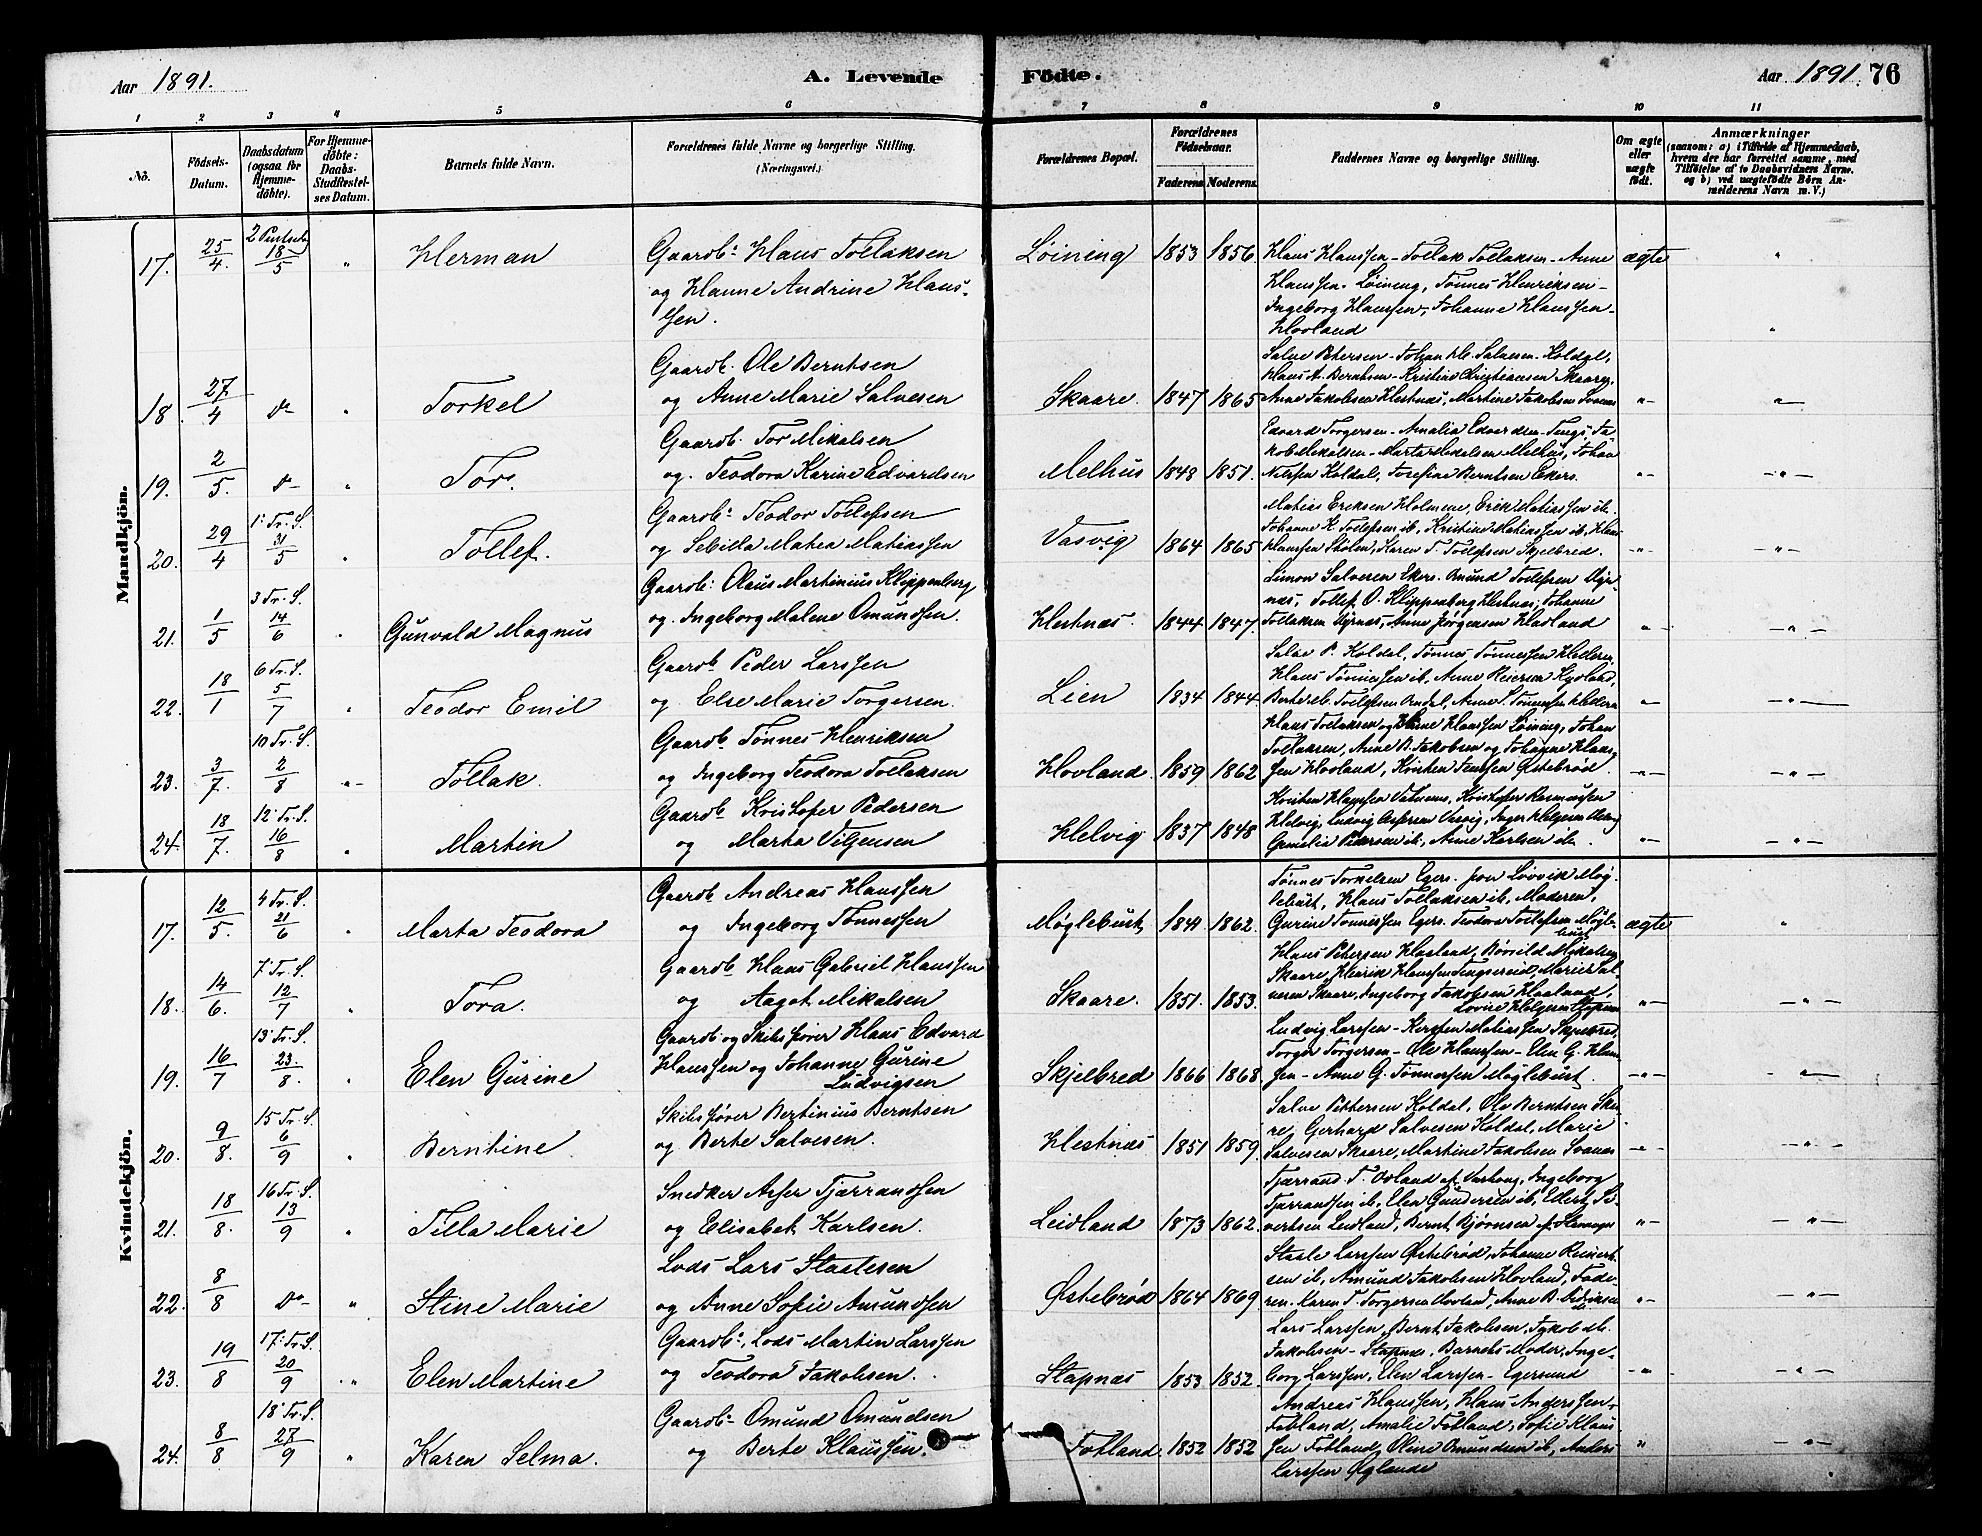 Aar 1891.
A. Levende
Födte.
Aar 1891. 76
1 2 3 4 5 6 7 8 9 10 11
No.
Födsels-Datum.
Daabsdatum (ogsaa for Hjemme-döbte).
For Hjemme-döbte: Daabs-Stadfæstel-ses Datum.
Barnets fulde Navn.
Forældrenes fulde Navne og borgerlige Stilling. (Næringsvei.)
Forældrenes Bopæl.
Forældrenes Födselsaar.
Faderens. Moderens.
Faddernes Navne og borgerlige Stilling.
Om ægte eller uægte födt.
Anmærkninger
(saasom: a) i Tilfælde af Hjemmedaab,
hvem der har forrettet samme, med
Tilföielse af to Daabsvidners Navne,
og b) ved uægtefödte Börn An-
melderens Navn m. V.)
Mandkjön.
17. 25/4. 18/5 " Herman
Gaardb: Hans Tollaksen
og Hanne Andrine Hans-
sen.
Løining 1853 1856
Hans Hanssen - Tollak Tollaksen - Anne
Hanssen - Løining, Tønnes Henriksen -
Ingeborg Hanssen, Johanne Hanssen -
Hovland
ægte "
18. 27/4 do " Torkel
Gaardb. Ole Berntsen
og Anne Marie Salvesen
Skaare. 1847 1865
Salve Petersen - Johan M. Salvesen - Koldal,
Hans A. Berntsen - Kristine Christiansen Skaare,
Anne Jakobsen Hestnæs, Martine Jakobsen Svanes
19. 2/5. do " Tor.
Gaardb. Tor Mikalsen
og. Teodora Karine Edvardsen
Melhus 1848 1851.
Edvard Torgersen - Amalia Edvardsen - Tengs, Ja-
kob Mikalsen - Marta Mikalsen Melhus, Johan
Nilssen Koldal, Josefine Berntsen Ekers.
20. 29/4 1: Tr. S. 31/5 " Tollef.
Gaardb: Teodor Tollefsen
og Sebilla Matea Matiassen
Vasvig 1864 1865
Matias Eriksen Holmene, Erik Matiassen ib.
Johanne K. Tollefsen ib, Kristine Matiassen ib, Hans
Hanssen Stølen, Karen T. Tollefsen Skjelbred.
21. 1/5 3 Tr. S. 14/6 " Gunvald Magnus
Gaardb: Olaus Martinius Klippenberg
og. Ingeborg Malene Omundsen.
Hestnæs. 1844 1847.
Simon Salvesen Ekers. Omund Tollefsen
Tollef O. Klippenberg Hestnæs, Johanne
Tollaksen, Anne Jørgensen Hadland
22. 18/1 6 Tr. S. 5/7 " Teodor Emil
Gaardb. Peder Larssen
og Else Marie Torgersen.
Lien 1834 1844
Salve P. Koldal, Tønnes Tønnessen
Hans Tønnessen ib, Anne Reiersen
Berte M. Tollefsen, Anne S. Tønnessen
23. 3/7. 10 Tr. S. 2/8 " Tollak.
Gaardb. Tønnes Henriksen
og Ingeborg Teodora Tollaksen
Hovland. 1859 1862
Hans Tollaksen og Hanne Hanssen Løining, Johan
Tollaksen, Anne B. Jakobsen og Johanne Hans-
sen Hovland, Kristen Jenssen Østebrød
24. 18/7. 12 Tr. S. 16/8 " Martin
Gaardb. Kristofer Pedersen
og Marta Vilgensen
Helvig 1837 1848
Kristen Hanssen, Kristofer Rasmussen
Helvig, Ludvig Aspesen Vasvig, Inger Helgesen
Pedersen ib, Anne Karlsen ib.
Kvindekjön.
17. 12/5. 4 Tr. S. 21/6 " Marta Teodora
Gaardb Andreas Hanssen
og Ingeborg Tønnessen
Møglebust, 1841 1862.
Tønnes Torkelsen Egers. Løvvik Møg-
lebust, Hans Tollaksen ib, Moderen,
Gurine Tønnessen Egers. Teodora Tollefsen Møgle-
bust
ægte "
18. 14/6. 7 Tr. S. 12/7 " Tora.
Gaardb Hans Gabriel Hanssen
og Aagot Mikalsen
Skaare. 1851. 1853.
Hans Petersen, Mikalsen
Skaare, Henrik Hanssen Tengsereid, Marie Sal-
vesen Skaare, Ingeborg Jakobsen
19. 16/7 13 Tr. S. 23/8. " Elen Gurine
Gaardb og Skibsfører Hans Edvard
Hanssen og Johanne Gurine
Ludvigsen
Skjelbred 1866 1868
Ludvig Larssen - Matiassen Skjelbred,
Torger Torgersen - Ole Hanssen - Elen G. Hans-
sen - Anne G. Tønnessen Møglebust.
20. 9/8. 15 Tr. S. 6/9 " Berntine
Skibsfører Bertinius Berntsen
og Berte Salvesen.
Hestnæs 1851 1859
Salve Pettersen Koldal, Ole Berntsen Skaa-
re, Gerhard Salvesen Koldal, Marie
Salvesen Skaare, Martine Jakobsen Svanes
21. 18/8. 16 Tr. S. 13/9 " Tilla Marie
Snedker Asser Tjærrandsen
og Elisabet Karlsen.
Leidland 1873 1862.
Tjærrand T. Ovland af Varhoug, Ingeborg
Tjærrandsen ib, Elen Gundersen ib, Edert Si-
vertsen Leidland, Bernt Bjørnsen
22. 8/8 do " Stine Marie
Lods Lars Staalesen
og Anne Sofie Amundsen
Østebrød 1864 1869
Staale Larssen Østebrød, Johanne Reinert-
sen ib, Amund Jakobsen Hovland, Fade-
ren, Karen T. Torgersen Hovland, Anne B.
23. 19/8 17: Tr. S. 20/9 " Elen Martine
Gaardb:, Lods Martin Larssen
og Teodora Jakobsen.
Stapnæs 1853 1852.
Lars Larssen, Bernt Jakobsen, Jakob M.
Jakobsen - Stapnæs, Barnets Moder, Inge-
borg Larssen, Elen Larssen - Egersund
24. 8/8 18 Tr. S. 27/9 " Karen Selma.
Gaardb: Omund Omundsen
og Berte Klaussen.
Fotland 1852 1852
Andreas Hanssen, Hans Anderssen
Fotland, Amalie Fotland, Sofie Klaus-
sen Fotland, Oline Omundsen ib, Anders
Larssen Øglænde